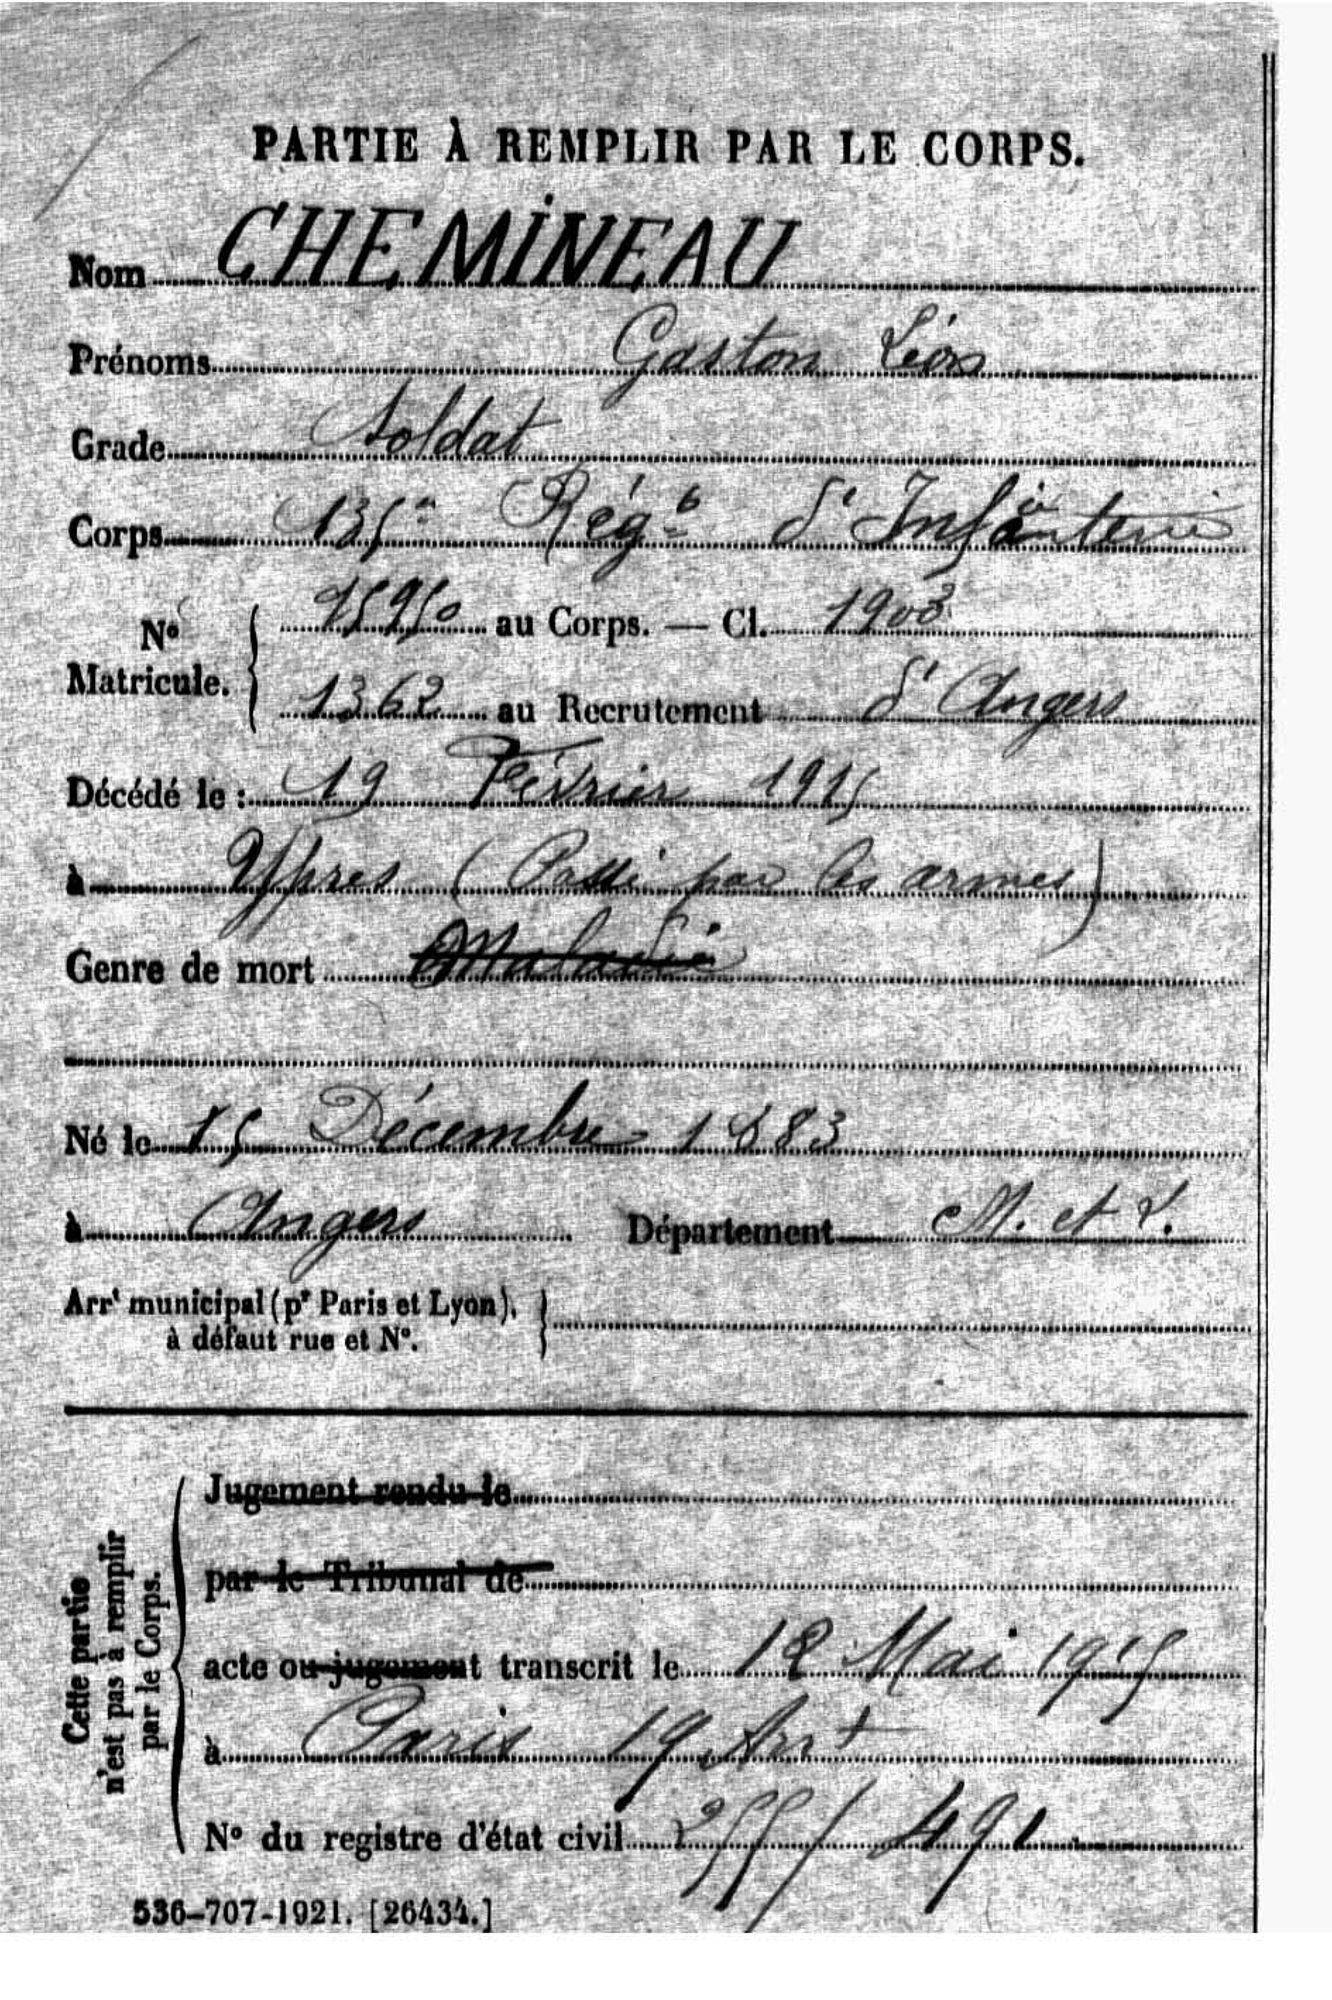 PARTIE À REMPLIR PAR LE CORPS.
Nom CHEMINEAU
Prénoms Gaston Léon
Grade Soldat
Corps 135e Régt d'Infanterie
No Matricule. { 15950 au Corps. — Cl. 1903
1362 au Recrutement d'Angers
Décédé le : 19 Février 1915
à Ypres (Passé par les armes)
Genre de mort Maladie
Né le 15 Décembre 1883
à Angers Département M. et L.
Arrt municipal (pr Paris et Lyon), }
à défaut rue et No.
Cette partie
n'est pas à remplir
par le Corps.
Jugement rendu le
par le Tribunal de
acte ou jugement transcrit le 12 Mai 1915
à Paris 19 Arrt
No du registre d'état civil 491
536-707-1921. [26434.]